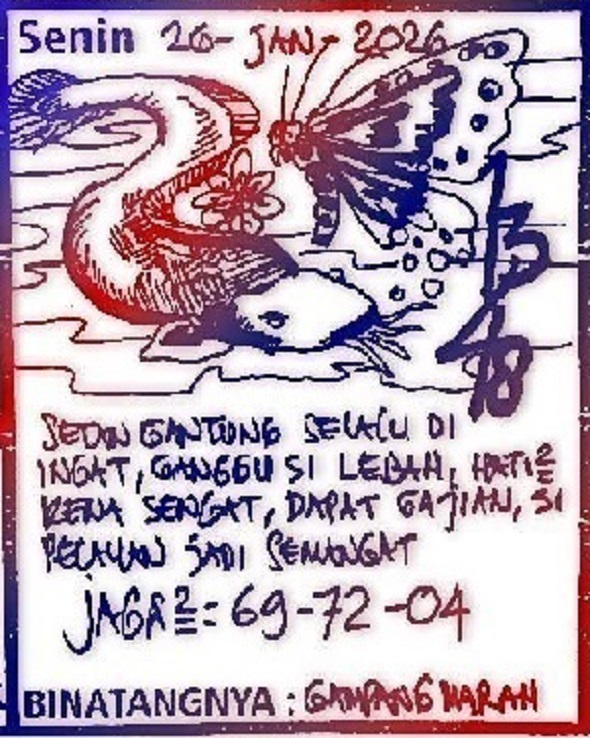 Senin 26-JAN-2026
SETAN GANTUNG SELALU DI
INGAT, GANGGU SI LEBAH, HATI2
KENA SENGAT, DAPAT GAJIAN, SI
PELAUAN JADI SEMANGAT
JAGA2= 69-72-04
BINATANGNYA : GAMPANG MARAH